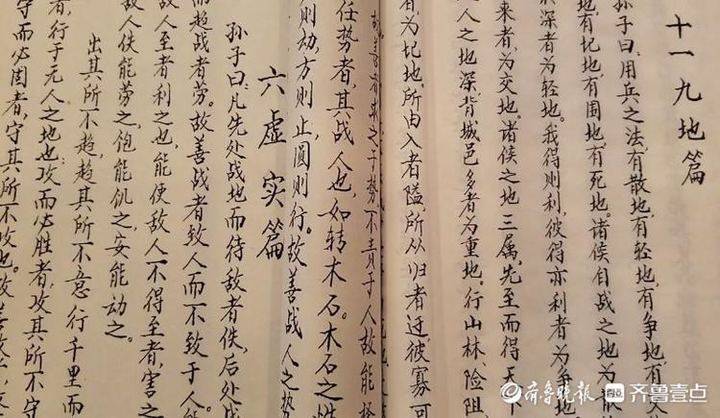 十一九地篇
孙子曰:用兵之法,有散地,有轻地,有争地,有
地,有圮地,有围地,有死地。诸侯自战之地为散
深者为轻地。我得则利,彼得亦利者为争地
来者,为交地。诸侯之地三属,先至而得天
人之地深,背城邑多者为重地。行山林险阻
者为圮地。所由入者隘,所从归者迂,彼寡可
故善战者求之于势,不责于人故能择
任势者,其战人也,如转木石。木石之性
则动,方则止,圆则行。故善战人之势
六虚实篇
孙子曰:凡先处战地而待敌者佚,后处战
而趋战者劳。故善战者致人而不致于人。
敌人至者利之也,能使敌人不得至者,害之
敌人佚能劳之,饱能饥之,安能动之。
出其所不趋,趋其所不意行千里而
者,行于无人之地也攻而必胜者,攻其所不守
守而必固者,守其所不攻也。故善攻
齐鲁晚报 齐鲁壹点